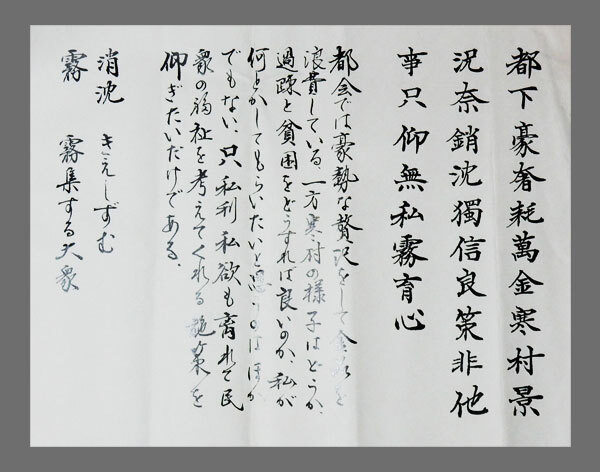 都下豪奢耗萬金寒村景
況奈銷沈獨信良策非他
事只仰無私霧育心
都会では豪勢な贅沢をして を
浪費している、一方寒村の様子はどうか、
過疎と貧困をどうすれば良いのか、私が
何とかしてもらいたいと思うのはほか
でもない、只私利私欲も离れて民
衆の福祉を考えてくれる施策を
仰ぎたいだけである、
消沈 きえしずむ
霧 霧集する大衆